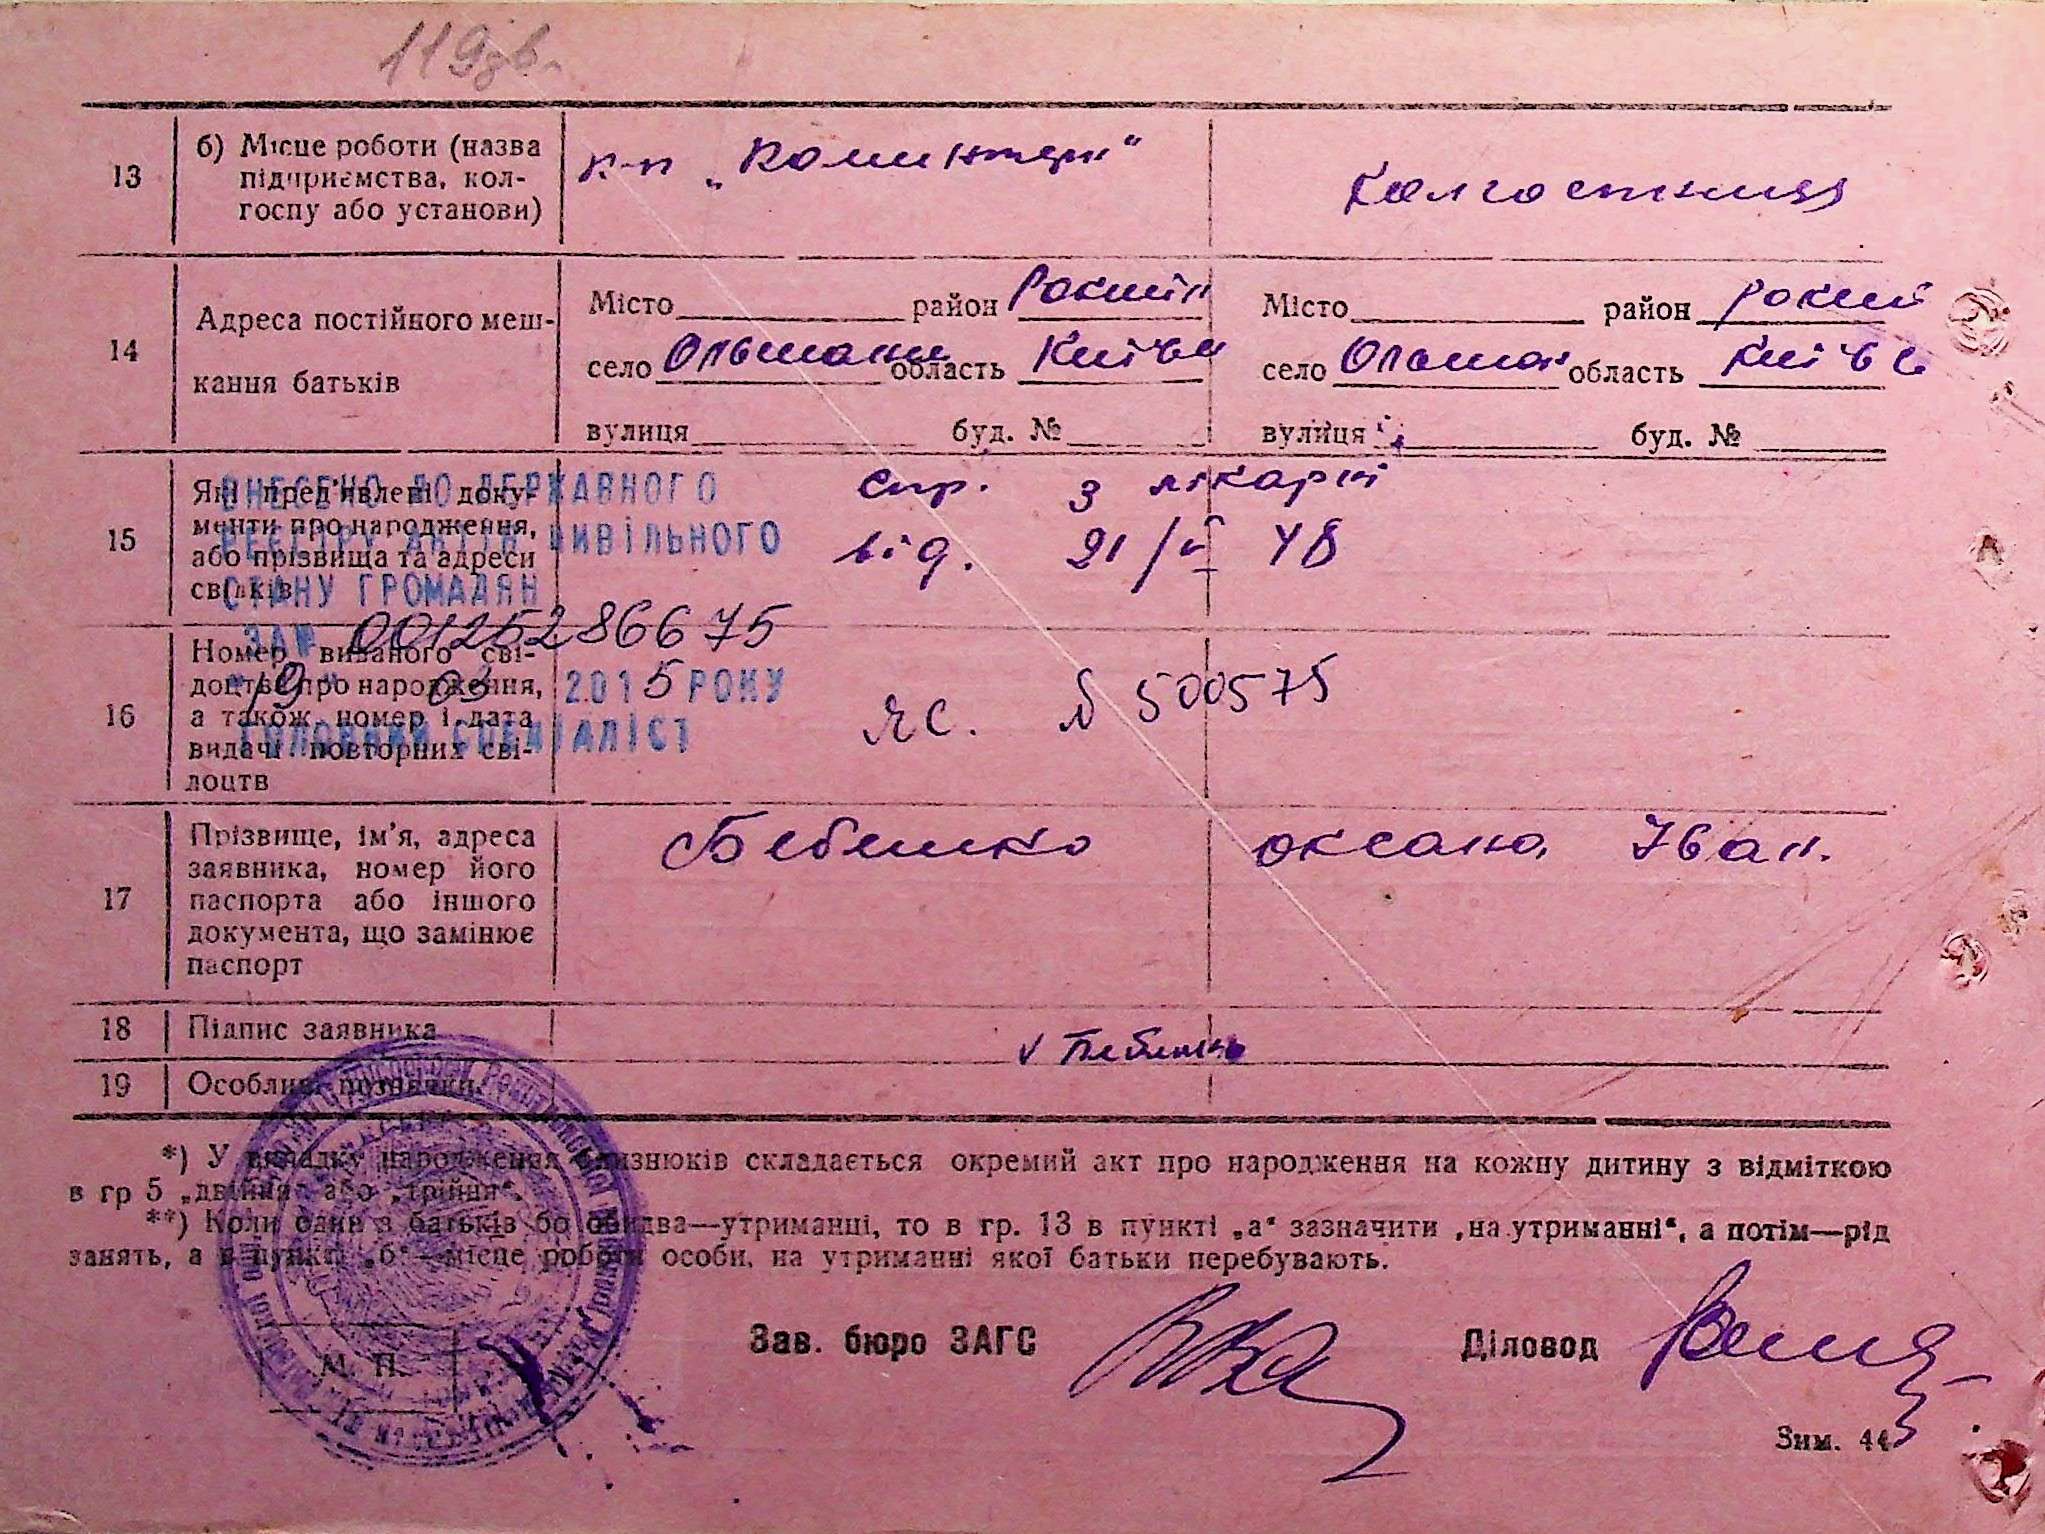 119зв.
13
б) Місце роботи (назва
підприємства, кол-
госпу або установи)
к-п „Коминтерн"
Колгоспниця
14
Адреса постійного меш-
кання батьків
Місто район Рокитн
село Ольшани область Київс
вулиця буд. №
Місто район Рокит
село Ольшан область Київс
вулиця буд. №
15
Які пред'явлені доку-
менти про народження,
або прізвища та адреси
свідків
спр. з лікарні
від. 21/ІІ 48
ВНЕСЕНО ДО ДЕРЖАВНОГО
РЕЄСТРУ АКТІВ ЦИВІЛЬНОГО
СТАНУ ГРОМАДЯН
ЗА № 00125286675
"19" 03 2015 РОКУ
ГОЛОВНИЙ СПЕЦІАЛІСТ
16
Номер виданого сві-
доцтва про народження,
а також номер і дата
видачі повторних сві-
доцтв
ЯС. № 500575
17
Прізвище, ім'я, адреса
заявника, номер його
паспорта або іншого
документа, що замінює
паспорт
Бебешко Оксана Іван.
18 Підпис заявника
v Бебешко
19 Особливі помітки
*) У випадку народження близнюків складається окремий акт про народження на кожну дитину з відміткою
в гр 5 „двійня" або „трійня".
**) Коли один з батьків бо обидва—утриманці, то в гр. 13 в пункті „а" зазначити „на утриманні", а потім—рід
занять, а в пункті „б"—місце роботи особи, на утриманні якої батьки перебувають.
М. П.
Зав. бюро ЗАГС
Діловод
Зим. 44